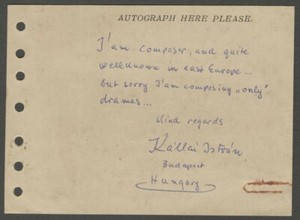 AUTOGRAPH HERE PLEASE.
I'am Composer, and quite
wellknown in east Europe...
but sorry I'am composing „only"
dramas...
Kind regards
Kállai István
Budapest
Hungary